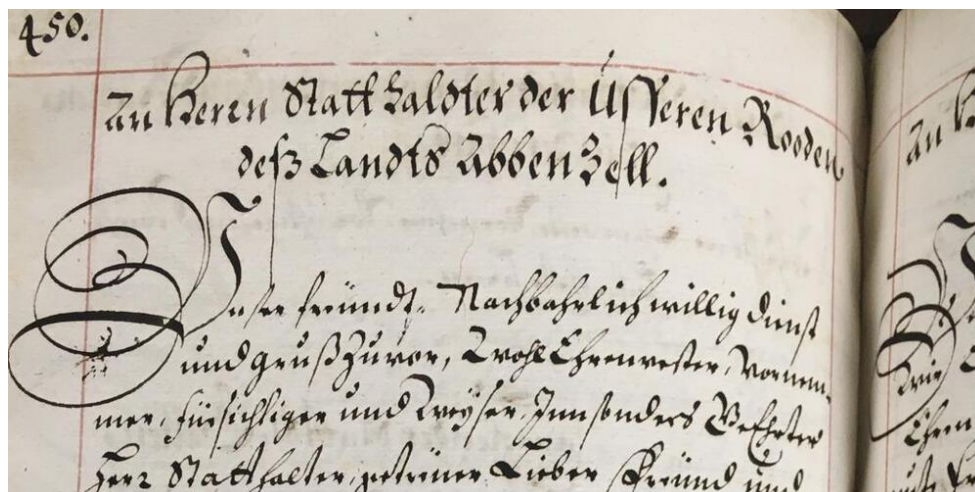 450.
An Heren Statthaldter der Üsseren Rooden
deß Landts Abbenzell.
Unser freündt- Nachbahrlich willig dienst
und gruß zuvor, Wohl Ehrenvester, Vornem-
mer, fürsichtiger und Weÿser, Innsonders Geehrter
Herr Statthalter, getreüwer Lieber Freünd und